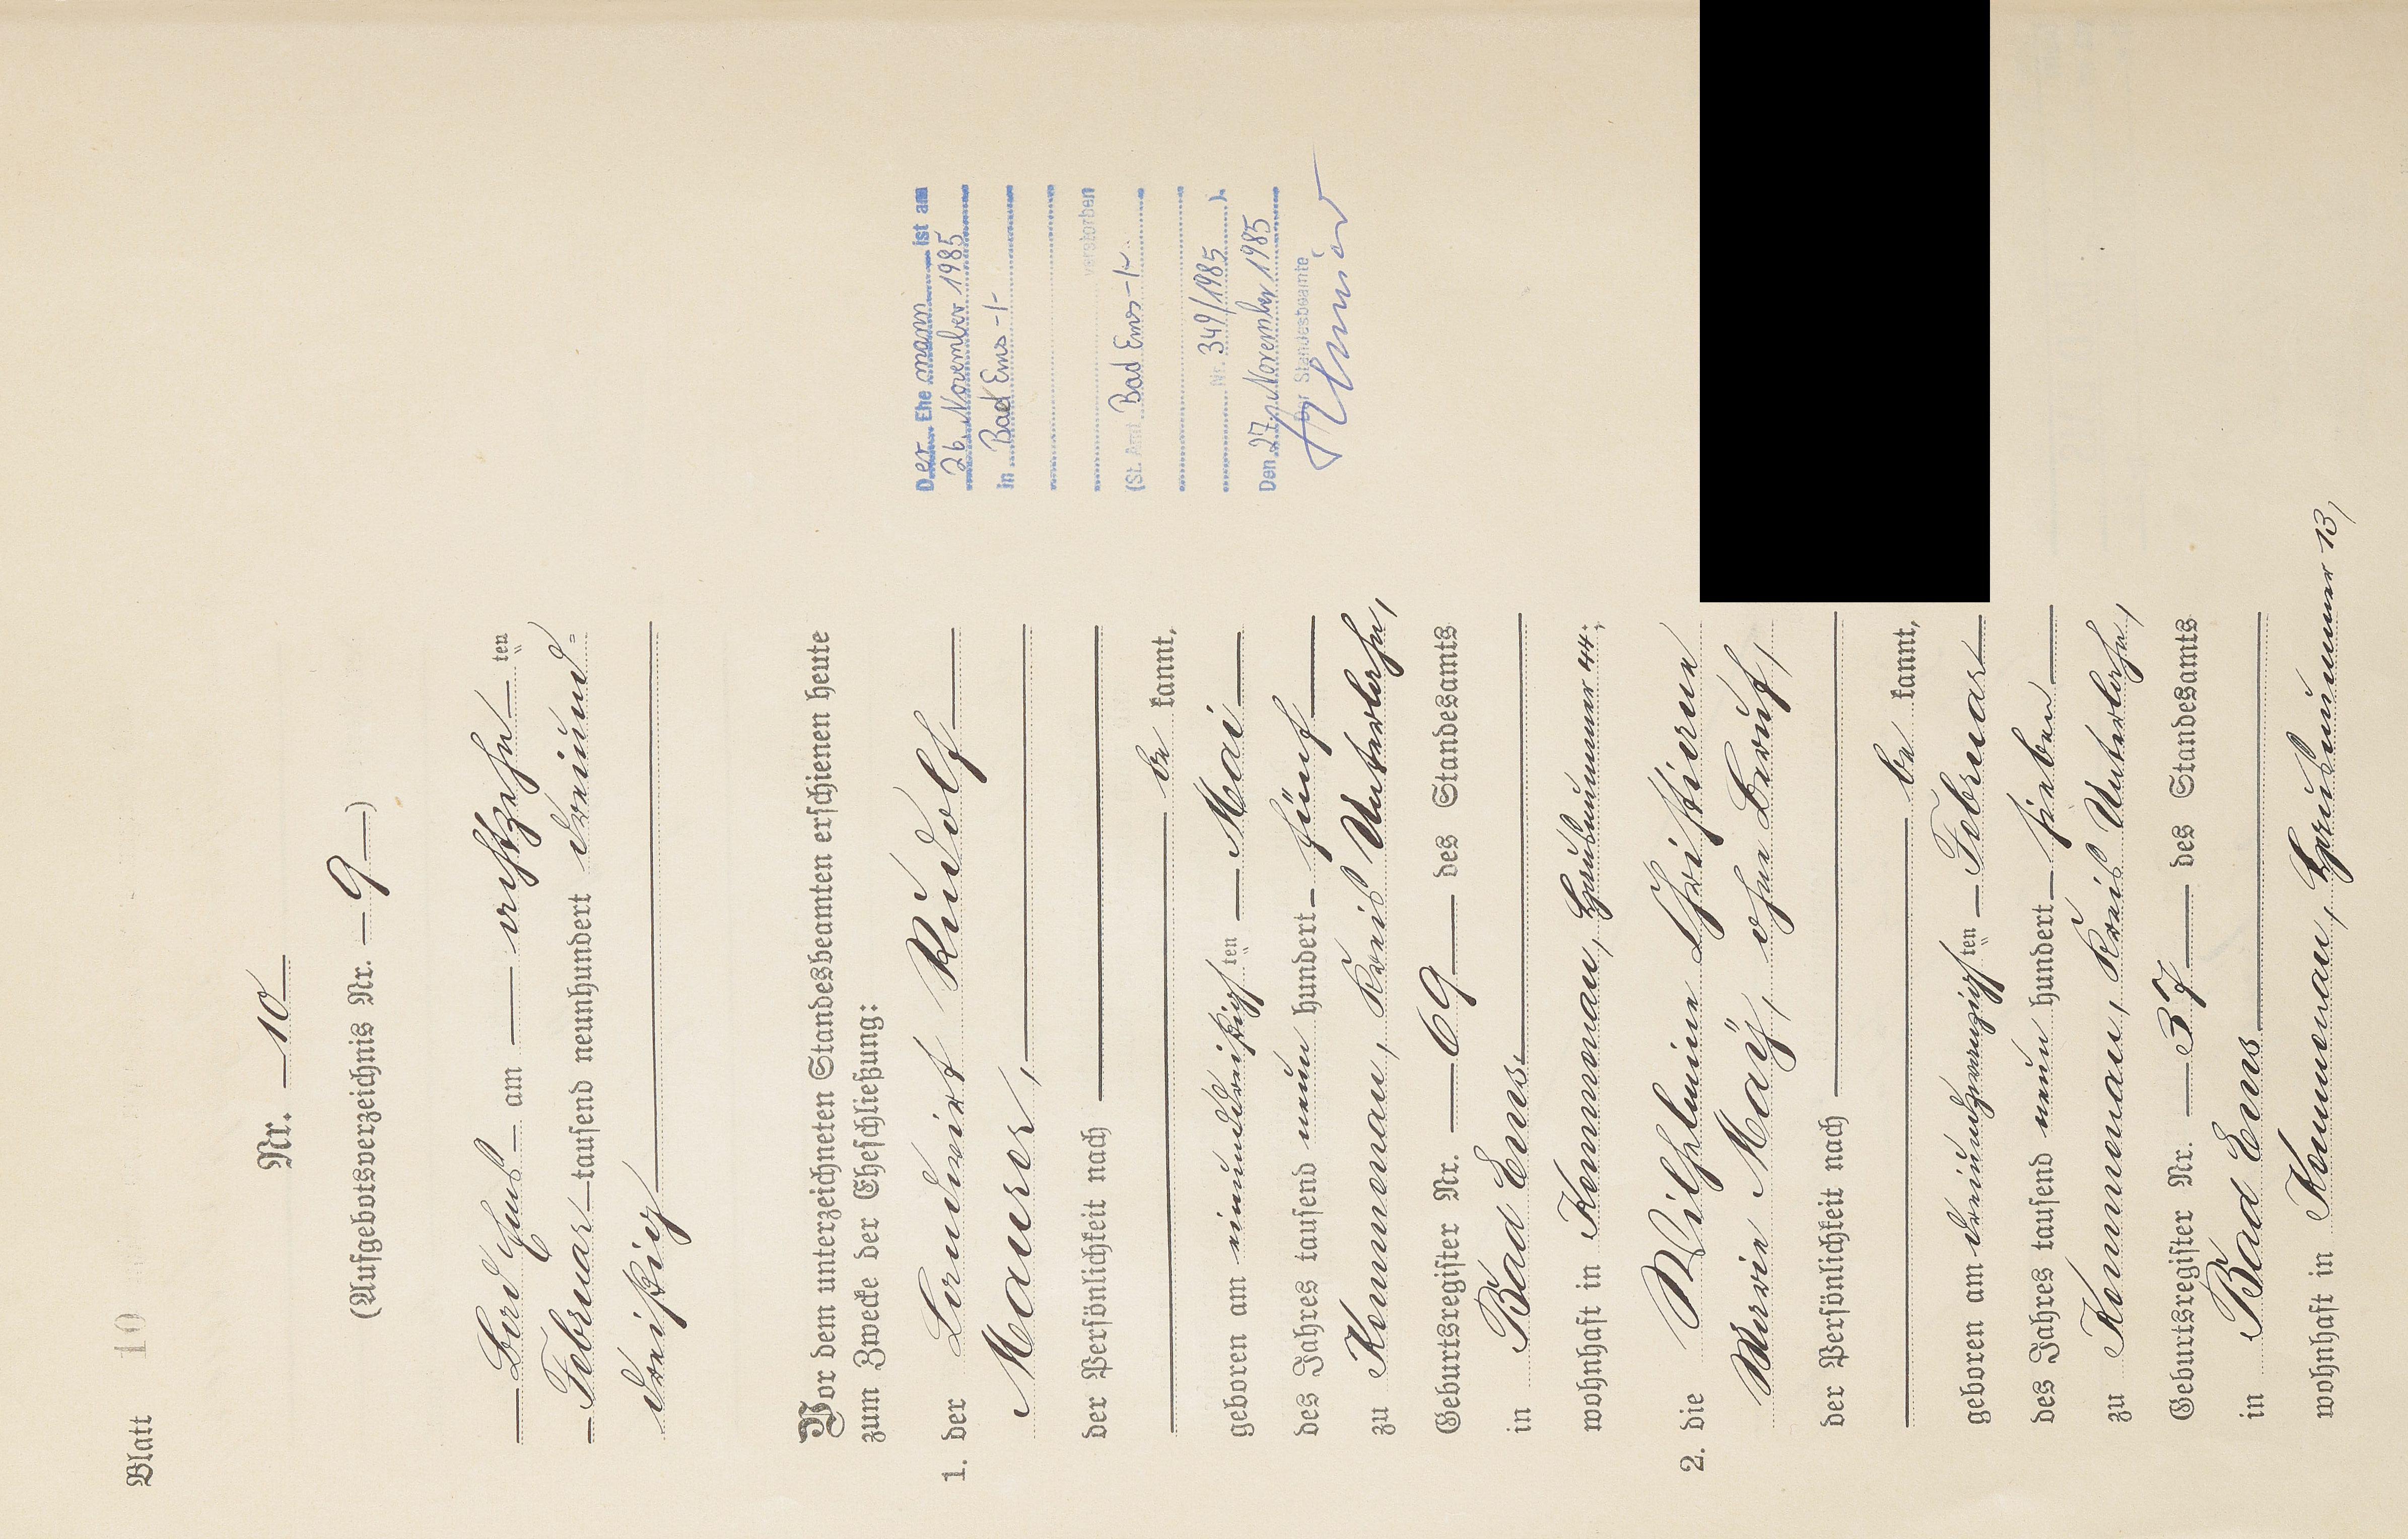 Blatt 10
Nr. 10
(Aufgebotsverzeichnis Nr. 9)
Bad Ems am achtzehnten
Februar tausend neunhundert dreiund-
dreißig
Vor dem unterzeichneten Standesbeamten erschienen heute
zum Zwecke der Eheschließung:
1. der Landwirt Rudolf
Maurer,
der Persönlichkeit nach
be kannt,
geboren am einunddreißigsten Mai
des Jahres tausend neun hundert fünf
zu Kemmenau, Kreis Unterlahn,
Geburtsregister Nr. 69 des Standesamts
in Bad Ems
wohnhaft in Kemmenau, Hausnummer 44;
2. die Wilhelmine Christiane
Marie May, ohne Beruf,
der Persönlichkeit nach
be kannt,
geboren am dreiundzwanzigsten Februar
des Jahres tausend neun hundert sieben
zu Kemmenau, Kreis Unterlahn,
Geburtsregister Nr. 37 des Standesamts
in Bad Ems
wohnhaft in Kemmenau, Hausnummer 13,
Der Ehemann ist am
26. November 1985
in Bad Ems -/-
verstorben
(St. Amt Bad Ems -/-
Nr. 349/1985 ).
Den 27. November 1985
Der Standesbeamte